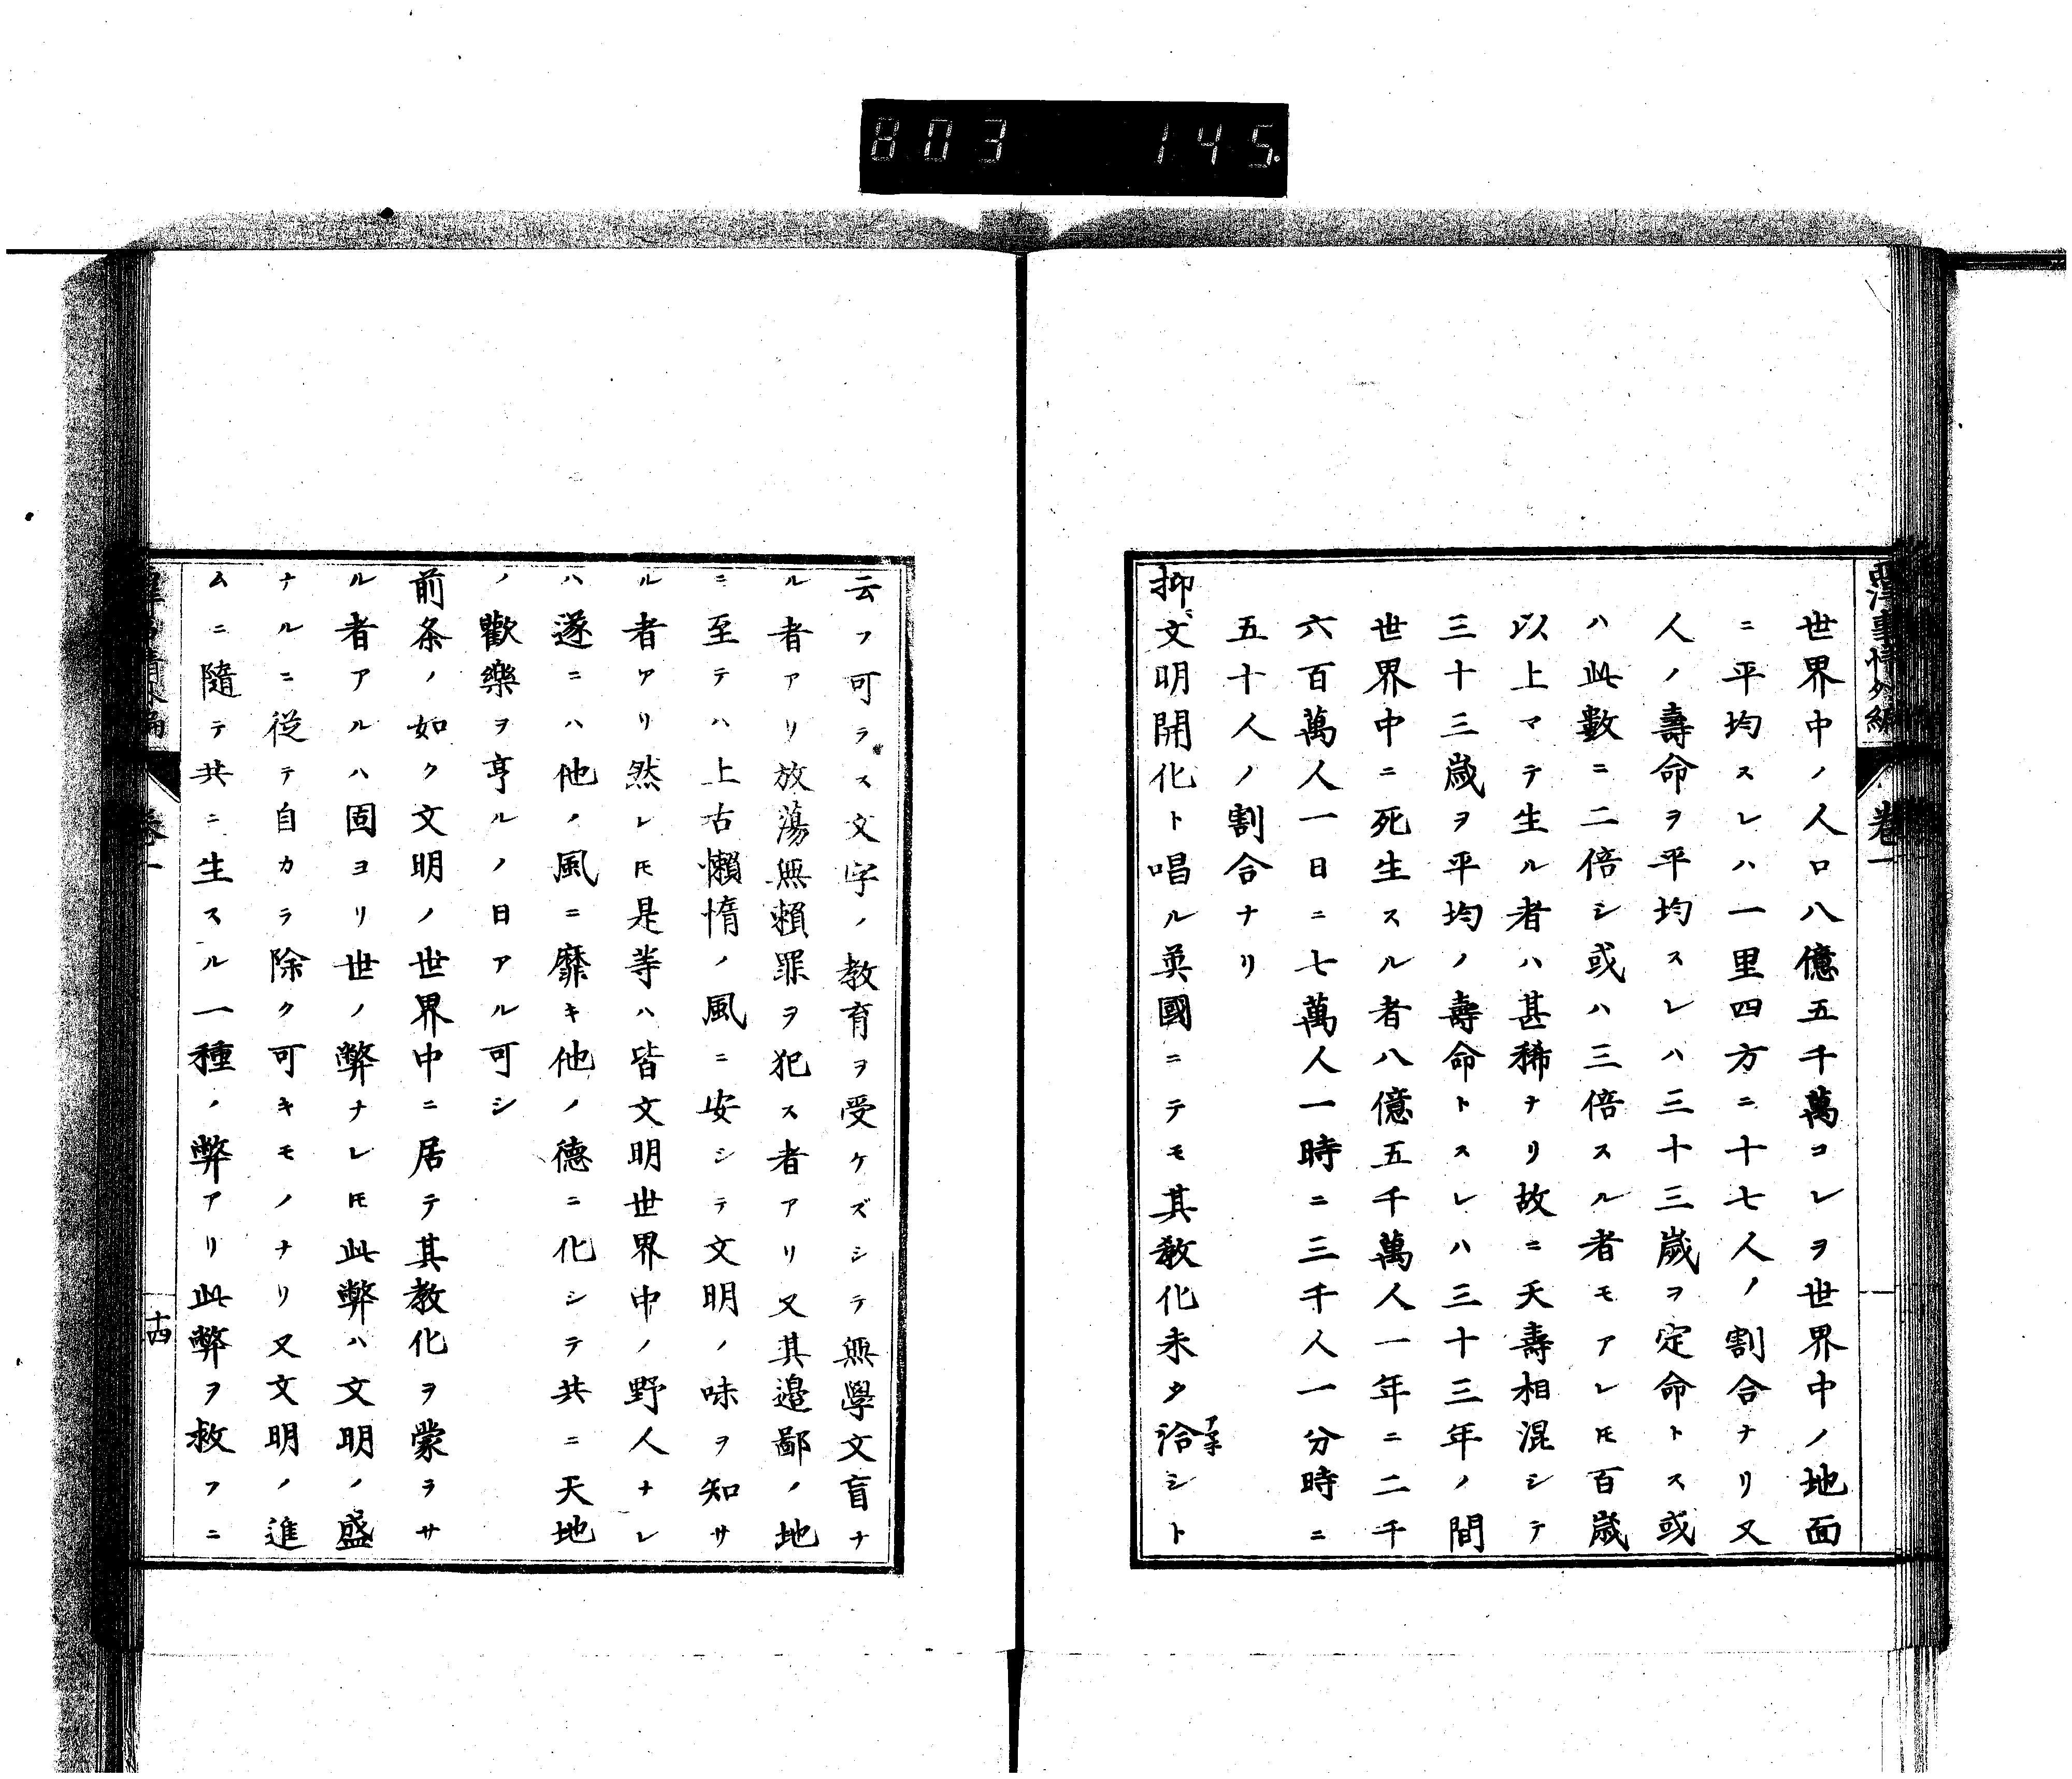 803 145.
西洋事情外編 卷一
世界中ノ人口八億五千萬コレヲ世界中ノ地面
ニ平均スレハ一里四方ニ十七人ノ割合ナリ又
人ノ壽命ヲ平均スレハ三十三歳ヲ定命トス或
ハ此數ニ二倍シ或ハ三倍スル者モアレ𪜈百歳
以上マテ生ル者ハ甚稀ナリ故ニ天壽相混シテ
三十三歳ヲ平均ノ壽命トスレハ三十三年ノ間
世界中ニ死生スル者八億五千萬人一年ニ二千
六百萬人一日ニ七萬人一時ニ三千人一分時ニ
五十人ノ割合ナリ
抑〻文明開化ト唱ル英國ニテモ其教化未タ洽シト
云フ可ラス文字ノ教育ヲ受ケズシテ無學文盲ナ
ル者アリ放蕩無頼罪ヲ犯ス者アリ又其邊鄙ノ地
ニ至テハ上古懶惰ノ風ニ安シテ文明ノ味ヲ知サ
ル者アリ然レ𪜈是等ハ皆文明世界中ノ野人ナレ
ハ遂ニハ他ノ風ニ靡キ他ノ德ニ化シテ共ニ天地
ノ歡樂ヲ亨ルノ日アル可シ
前条ノ如ク文明ノ世界中ニ居テ其教化ヲ蒙ラサ
ル者アルハ固ヨリ世ノ弊ナレ𪜈此弊ハ文明ノ盛
ナルニ從テ自カラ除ク可キモノナリ又文明ノ進
ムニ隨テ共ニ生スル一種ノ弊アリ此弊ヲ救フニ
卷一
十四